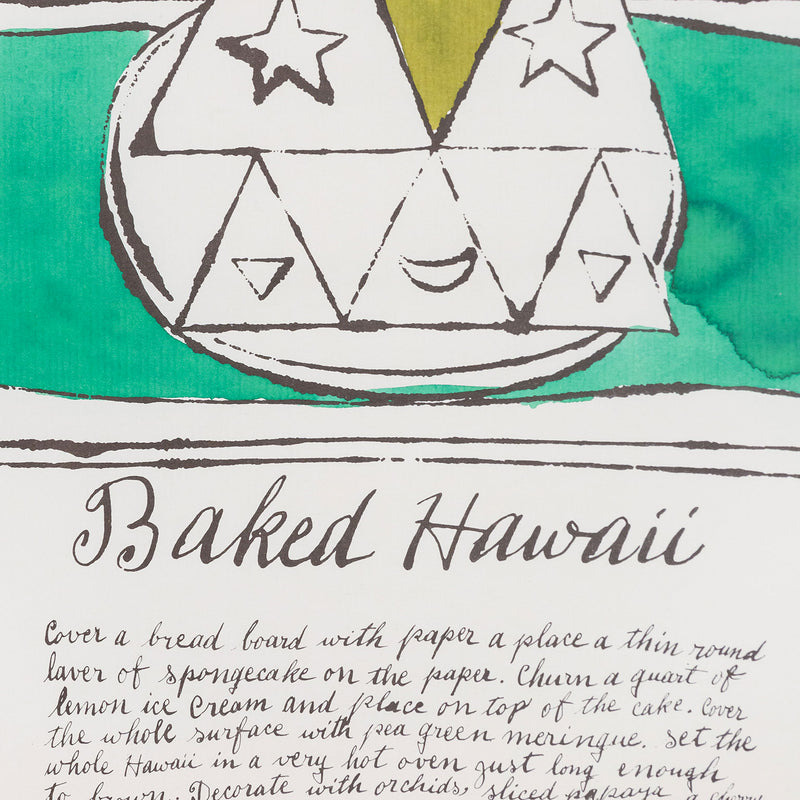 Baked Hawaii
Cover a bread board with paper a place a thin round
laver of spongecake on the paper. Churn a quart of
lemon ice Cream and place on top of the cake. Cover
the whole surface with pea green meringue. Set the
whole Hawaii in a very hot oven just long enough
to brown. Decorate with orchids, sliced papaya a cherry